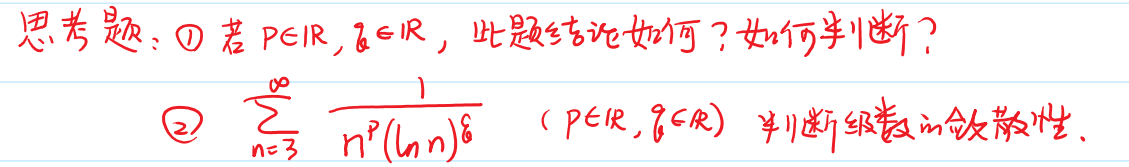 思考题：① 若 P∈ℝ, q∈ℝ, 此题结论如何？如何判断？
② $\sum_{n=3}^{\infty} \frac{1}{n^p (\ln n)^q}$ (P∈ℝ, q∈ℝ) 判断级数的敛散性.